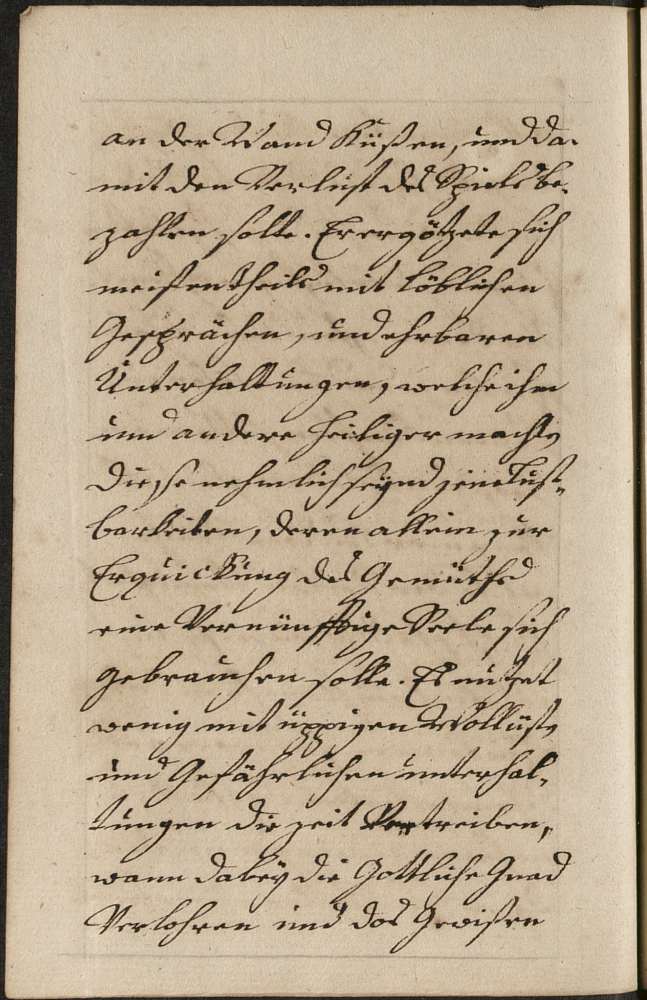 an der Wand Küßen, und da-
mit den Verlust des Spiels be-
zahlen solte. Er ergötzete sich
meistentheils mit löblichen
Gesprächen, und ehrbaren
Unterhaltungen, welche ihm
und andere heiliger machte
diese nehmlich seynd jene Lust-
barkeiten, deren allein zur
Erquickung des Gemüths
eine Vernünfftige Seele sich
gebrauchen solle. Es nutzet
wenig mit üppigen Wollüste
und Gefährlichen unterhal-
tungen die zeit Vertreiben,
wann dabey die Göttliche Gnad
Verlohren und das Gewißen